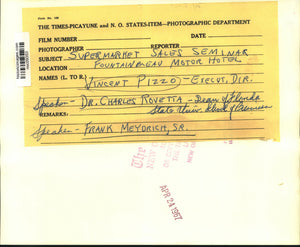 THE TIMES-PICAYUNE and N. O. STATES-ITEM—PHOTOGRAPHIC DEPARTMENT
FILM NUMBER DATE
PHOTOGRAPHER REPORTER
SUBJECT SUPERMARKET SALES SEMINAR
LOCATION FOUNTAINBLEAU MOTOR HOTEL
NAMES (L. TO R.) VINCENT PIZZO - EXECUT. DIR.
Speaker - DR. CHARLES ROVETTA - Dean of Florida
REMARKS: State Univ. School of Business
Speaker - FRANK MEYDRICH, SR.
The
NEW
APR 24 1967